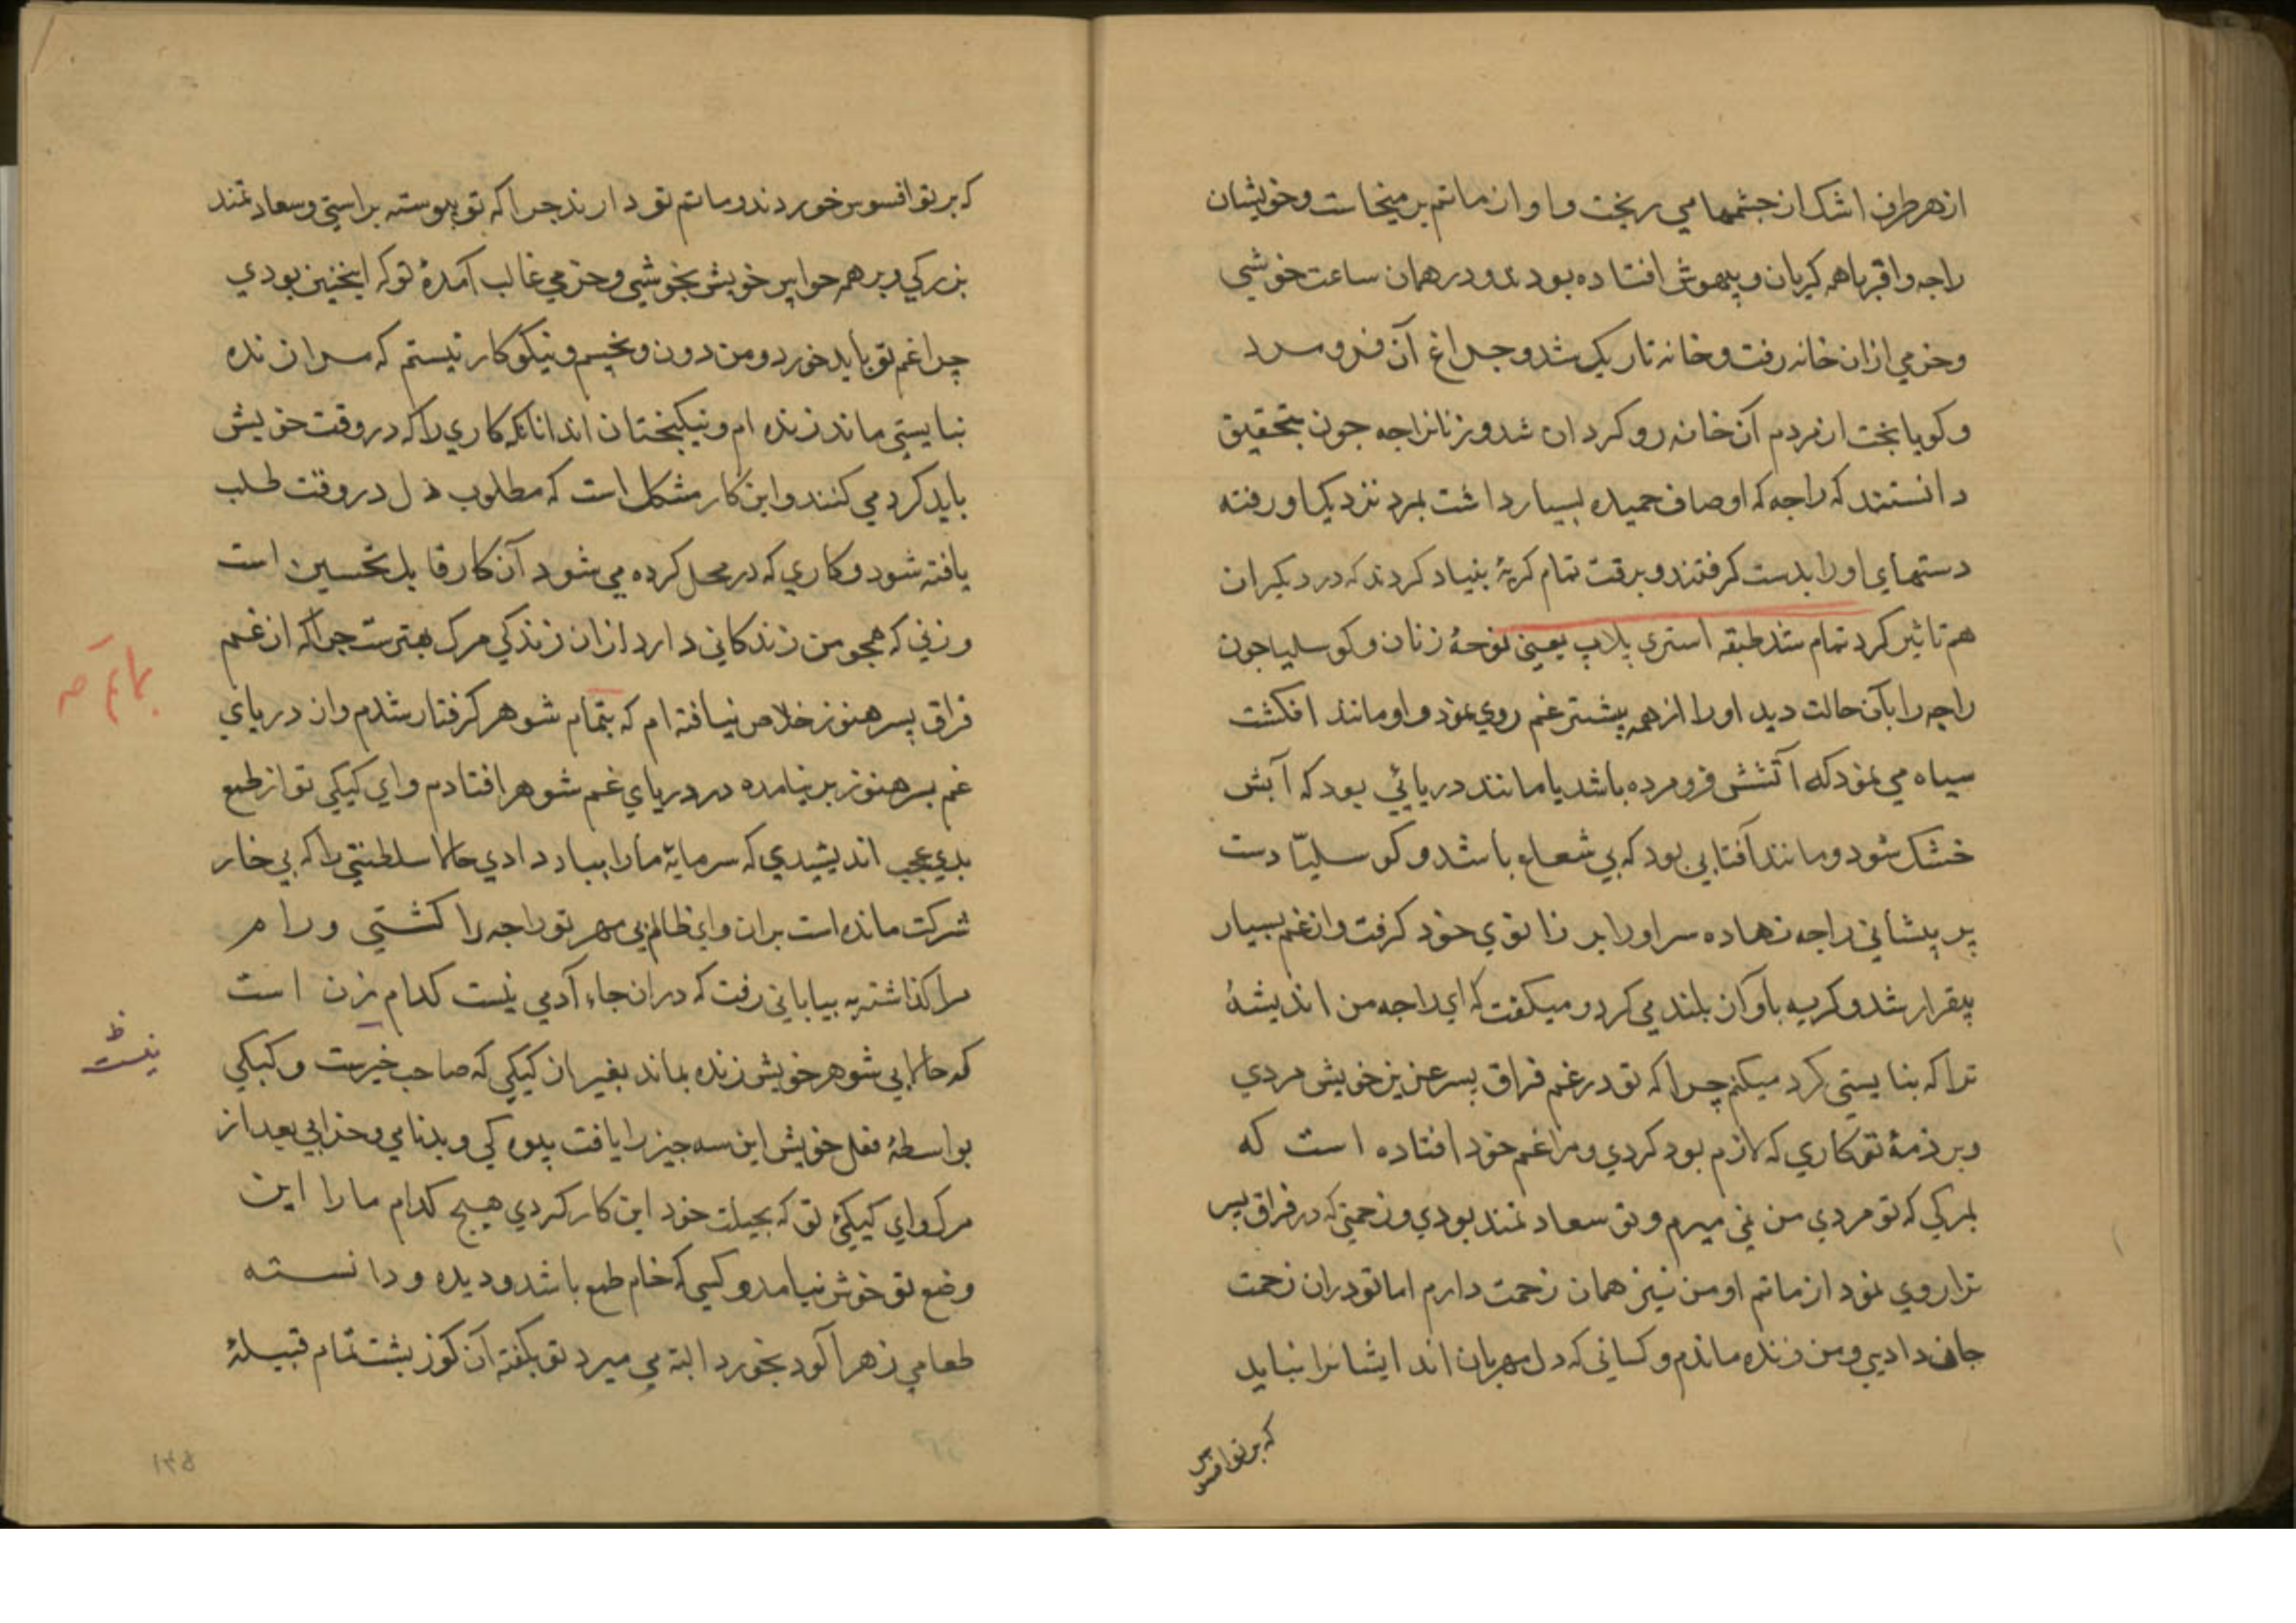 ازهرطرف اشک از جشمها مي ریخت و اواز ماتم برمیخاست وخویشان
راجه واقربا همه کریان و بیهوش افتاده بودند ودر همان ساعت خوشي
وخرمي ازان خانه رفت وخانه تاریک شد وجراغ آن فرو مرد
وکویا بخت از مردم آن خانه رو کردان شد و زنان راجه جون بتحقیق
دانستند که راجه که اوصاف حمیده بسیار داشت بمرد نزدیک او رفته
دستهاي او را بدست کرفتند و برقت تمام کریۀ بنیاد کردند که در دیکران
هم تاثیر کرد تمام شد طبقه استري پلاپ یعني نوحۀ زنان و کوسلیا جون
راجه را بآن حالت دید او را از همه بیشتر غم روي نمود و او مانند انکشت
سیاه مي نمود که آتشش فرو مرده باشد یا مانند دریائي بود که آبش
خشک شود و مانند آفتابي بود که بي شعاع باشد و کوسلیّا دست
بر پیشاني راجه نهاده سر او را بر زانوي خود کرفت و از غم بسیار
بیقرار شد و کریه بآواز بلند مي کرد و میکفت که اي راجه من اندیشۀ
ترا که بنایستي کرد میکنم چرا که تو در غم فراق پسر عزیز خویش مردي
و بر ذمۀ تو کاري که لازم بود کردي و مرا غم خود افتاده است که
بمرکي که تو مردي من نمي میرم و تو سعادتمند بودي و زحمتي که در فراق پسر
ترا روي نمود از ماتم او من نیز همان زحمت دارم اما تو دران زحمت
جان دادي و من زنده ماندم و کساني که دل مهربان اند ایشانرا نباید
که بر تو افسوس
که بر تو افسوس خوردند و ماتم تو دارند جرا که تو پیوسته براستي وسعادتمند
بزرکي وبر همه خویش بخوشي و خرمي غالب آمدۀ تو که اینجنین بودي
چرا غم تو باید خورد و من دون وبخیم و نیکوکار نیستم که مرا زنده
نبایستي ماند زنده ام و نیکبختان اند انانکه کاري را که در وقت خویش
باید کرد مي کنند و این کار مشکل است که مطلوب دل در وقت طلب
یافته شود و کاري که در محل کرده مي شود آن کار قابل تحسین است
و زني که همجو من زندکاني دارد ازان زندکي مرک بهترست جرا که از غم
فراق پسر هنوز خلاص نیافته ام که بتمام شوهر کرفتار شدم و از دریاي
غم پسر هنوز بر نیامده در دریاي غم شوهر افتادم و اي کیکي تو از طمع
بدي عجب اندیشیدي که سرمایۀ ما را بباد دادي حالا سلطنتي را که بي خار
شرکت مانده است بران و اي ظالم بي مهر تو راجه را کشتي و رام
مرا کذاشته به بیاباني رفت که دران جاء آدمي نیست کدام زن است
که حالا بي شوهر خویش زنده بماند بغیر از کیکي که صاحب خیرست و کیکي
بواسطۀ فعل خویش این سه جیز را یافت بیوه کي و بدنامي و خرابي بعد از
مرک و اي کیکئ تو که بحیلت خود این کار کردي هیج کدام ما را این
وضع تو خوش نیامد و کسي که خام طمع باشد و دیده و دانسته
طعامي زهر آلود بخورد البته مي میرد تو بکفته آن کوز پشت تمام قبیلۀ
بماتم صه
نیست ظ